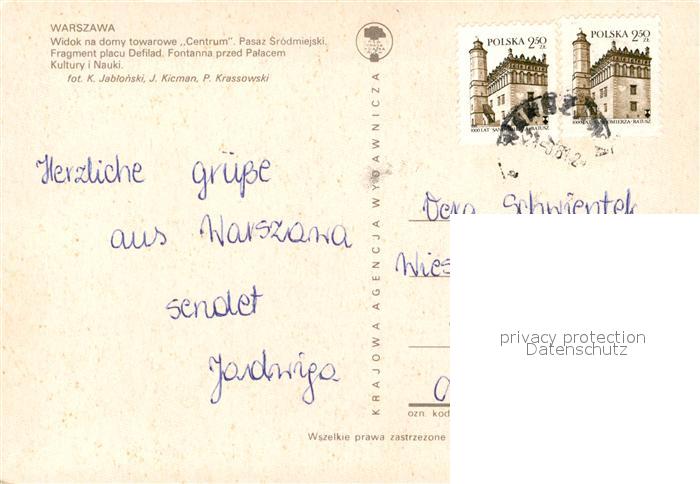 WARSZAWA
Widok na domy towarowe „Centrum". Pasaż Śródmiejski.
Fragment placu Defilad. Fontanna przed Pałacem
Kultury i Nauki.
fot. K. Jabłoński, J. Kicman, P. Krassowski
POLSKA 2,50 ZŁ
1000 LAT SANDOMIERZA · RATUSZ
POLSKA 2,50 ZŁ
1000 LAT SANDOMIERZA · RATUSZ
Herzliche grüße
aus Warszawa
sendet
Jadwiga
KRAJOWA AGENCJA WYDAWNICZA
Vera Schwientek
Wies
ozn. kod
Wszelkie prawa zastrzeżone
privacy protection
Datenschutz